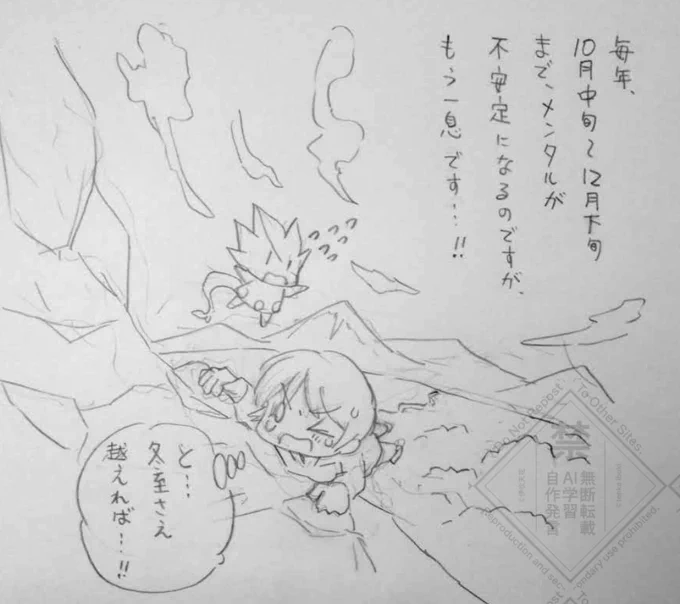 毎年、
10月中旬〜12月下旬
まで、メンタルが
不安定になるのですが、
もう一息です…!!
と…
冬至さえ
越えれば…!!
Do Not Repost
To Other Sites
禁
無断転載
AI学習
自作発言
Reproduction and secondary use prohibited.